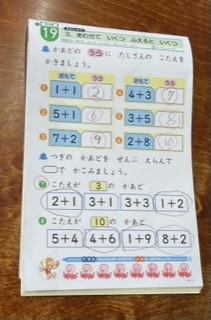 19
3. あわせて いくつ ふえると いくつ
かあどの うらに たしざんの こたえを
かきましょう。
おもて うら おもて うら
① 1+1 2 ④ 4+3 7
② 5+1 6 ⑤ 3+5 8
③ 7+2 9 ⑥ 2+8 10
つぎの かあどを ぜんぶ えらんで
で かこみましょう。
⑦ こたえが 3 の かあど
2+1 3+1 3+3 1+2
⑧ こたえが 10 の かあど
5+4 4+6 1+9 8+2